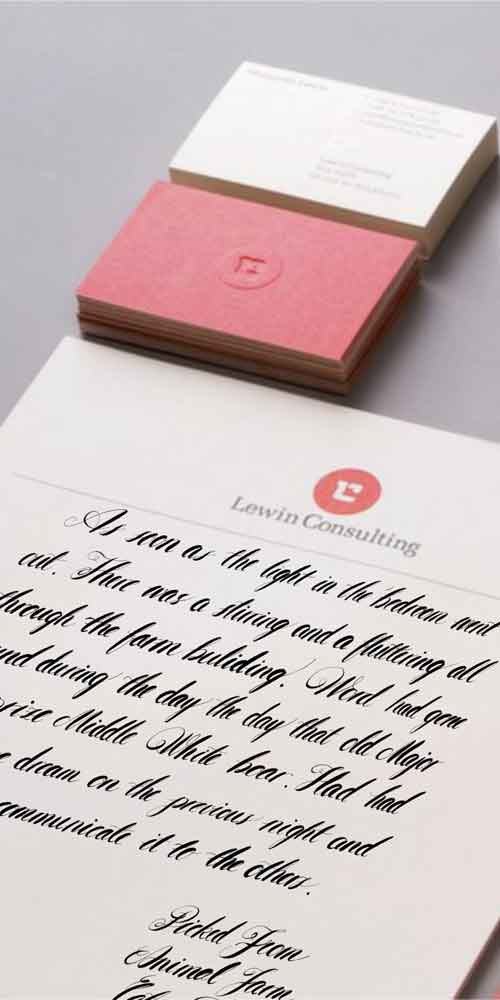 Lewin Consulting
As soon as the light in the bedroom went
out. There was a stirring and a fluttering all
through the farm buliding. Word had gone
und during the day the day that old Major
rize Middle White boar. Had had
e dream on the previous night and
communicate it to the others.
Picked From
Animal Farm